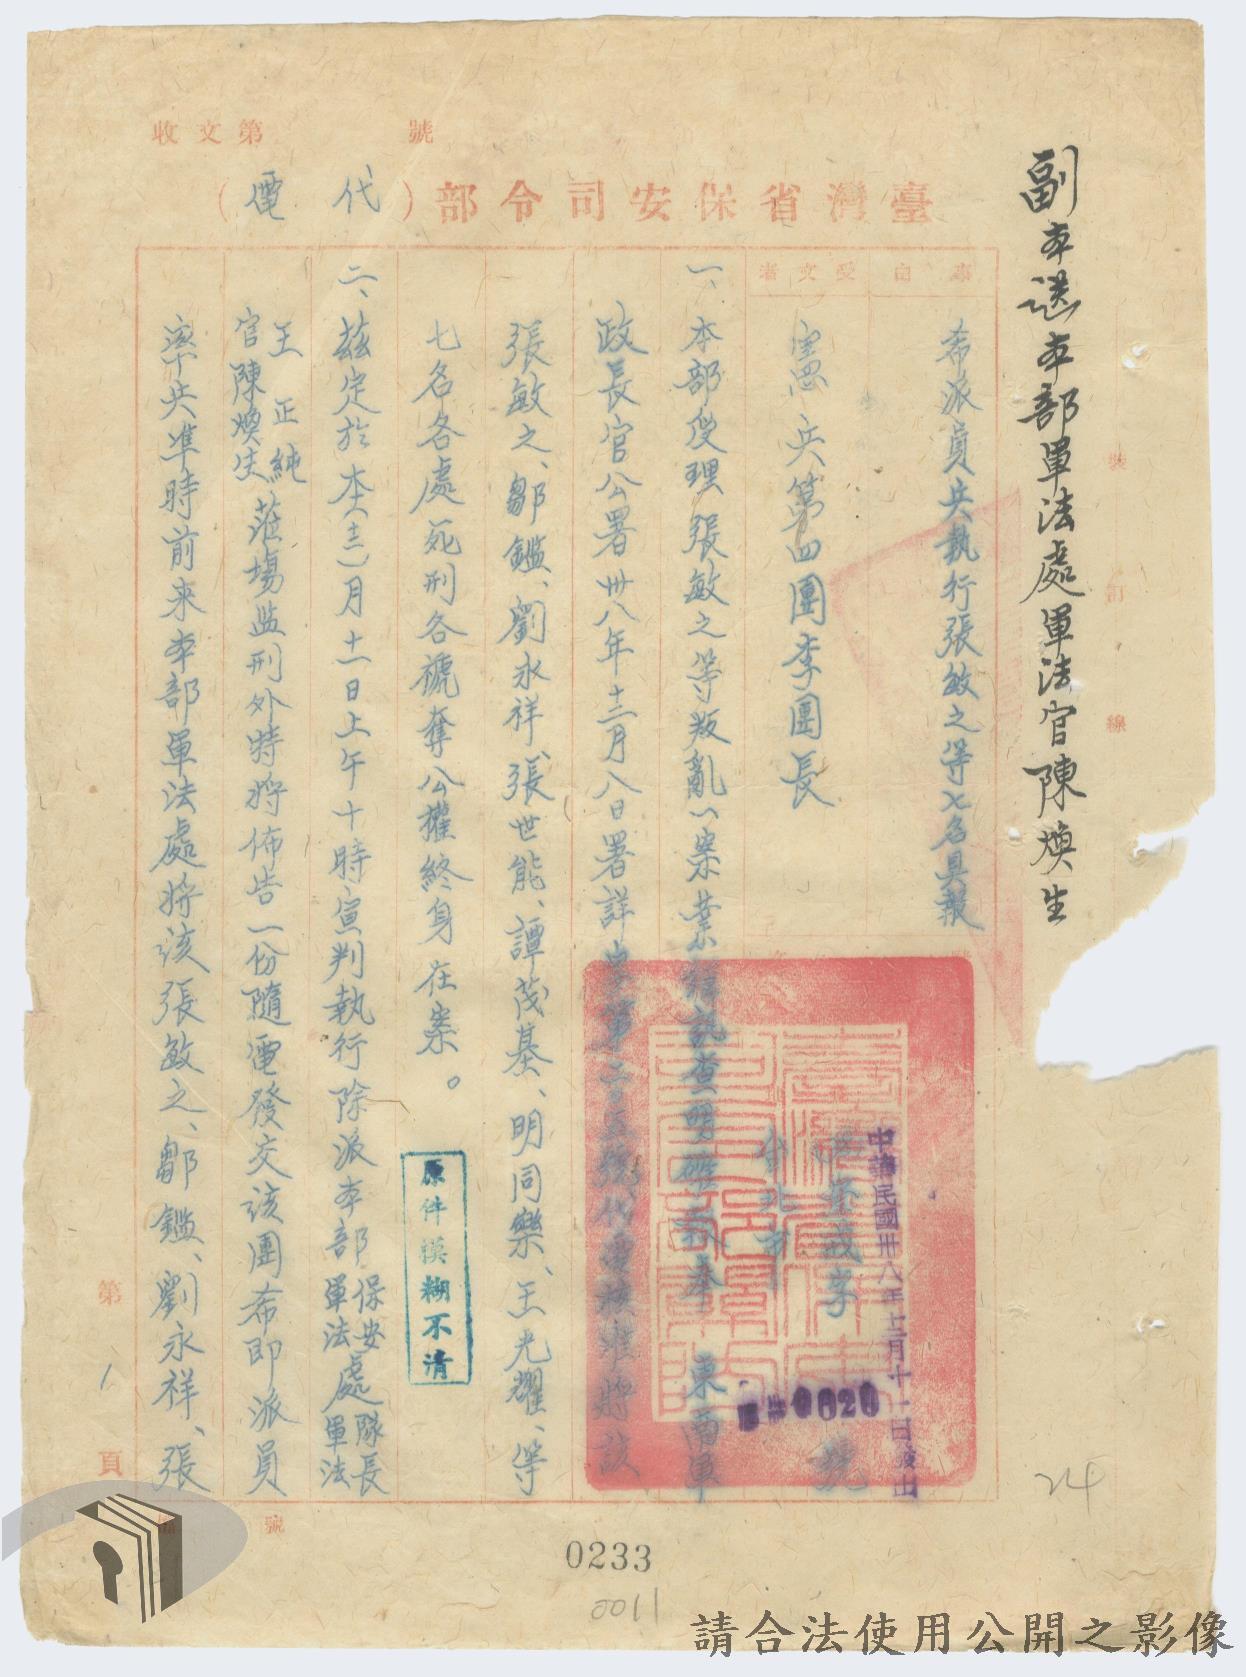 收文第　號
臺灣省保安司令部（代電）
副本送本部軍法處軍法官陳煥生
裝訂線
事由
希派員兵執行張敏之等七名具報
受文者
憲兵第四團李團長
中華民國卅八年十二月十一日發出
0620
號
一、本部受理張敏之等叛亂一案業經訊查明確報奉 東南軍
政長官公署卅八年十二月八日署詳字第二 號代電核准將該
張敏之、鄒鑑、劉永祥、張世能、譚茂基、明同樂、王光耀、等
七名各處死刑各褫奪公權終身在案。
原件模糊不清
二、茲定於本（十二）月十一日上午十時宣判執行除派本部保安處隊長軍法處軍法
官王正純陳煥生蒞場監刑外特將佈告一份隨電發交該團希即派員
率兵準時前來本部軍法處將該張敏之、鄒鑑、劉永祥、張
第1頁
號
24
0233
0011
請合法使用公開之影像